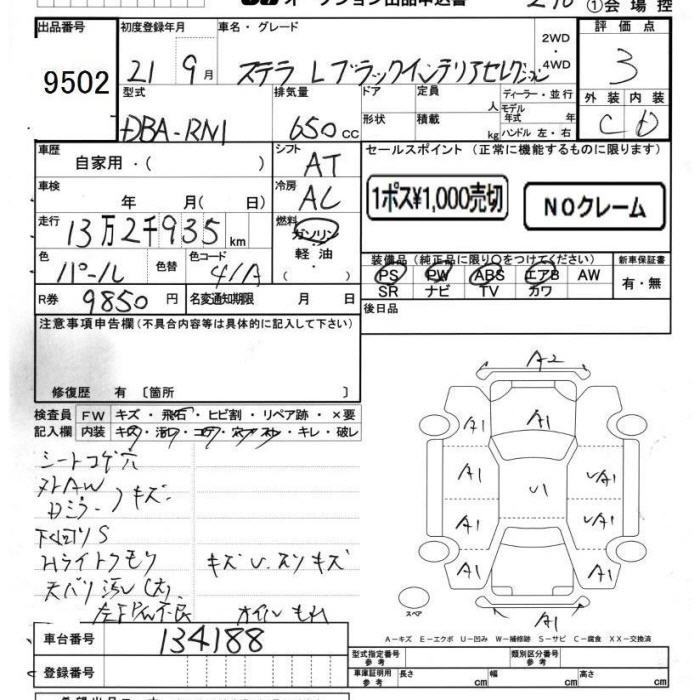 オークション出品申込書
①会場控
出品番号
9502
初度登録年月
21 9月
車名・グレード
ステラ Lブラックインテリアセレクション
2WD
・
4WD
評価点
3
外装 内装
C D
型式
DBA-RN1
排気量
650cc
ドア
形状
定員
人
積載
kg
ディーラー・並行
モデル年式 年
ハンドル 左・右
車歴
自家用・( )
シフト
AT
セールスポイント(正常に機能するものに限ります)
1ポス¥1,000売切
NOクレーム
車検
年 月( 日)
冷房
AC
走行
13万2千935km
燃料
ガソリン
・
軽油
( )
色
パール
色替
色コード
41A
装備品(純正品に限り○をつけてください)
PS PW ABS エアB AW
SR ナビ TV カワ
新車保証書
有・無
R券 9850円
名変通知期限 月 日
後日品
注意事項申告欄(不具合内容等は具体的に記入して下さい)
修復歴 有 〔箇所 〕
検査員 FW キズ・飛石・ヒビ割・リペア跡・×要
記入欄 内装 キズ・汚レ・コゲ・穴・スレ・キレ・破レ
シートコゲ穴
メトAW
Dミラー キズ
下回りS
Hライトクモリ キズU.スリキズ
天バリ汚レ(大)
左FPW不良 オイルもれ
A2
A1 A1
A1 U1 UA1
A1 UA1
A1 A1
A1
スペア
A-キズ E-エクボ U-凹み W-補修跡 S-サビ C-腐食 XX-交換済
車台番号 134188
登録番号
型式指定番号
参考
類別区分番号
参考
車庫証明用
参考
長さ cm 幅 cm 高さ cm